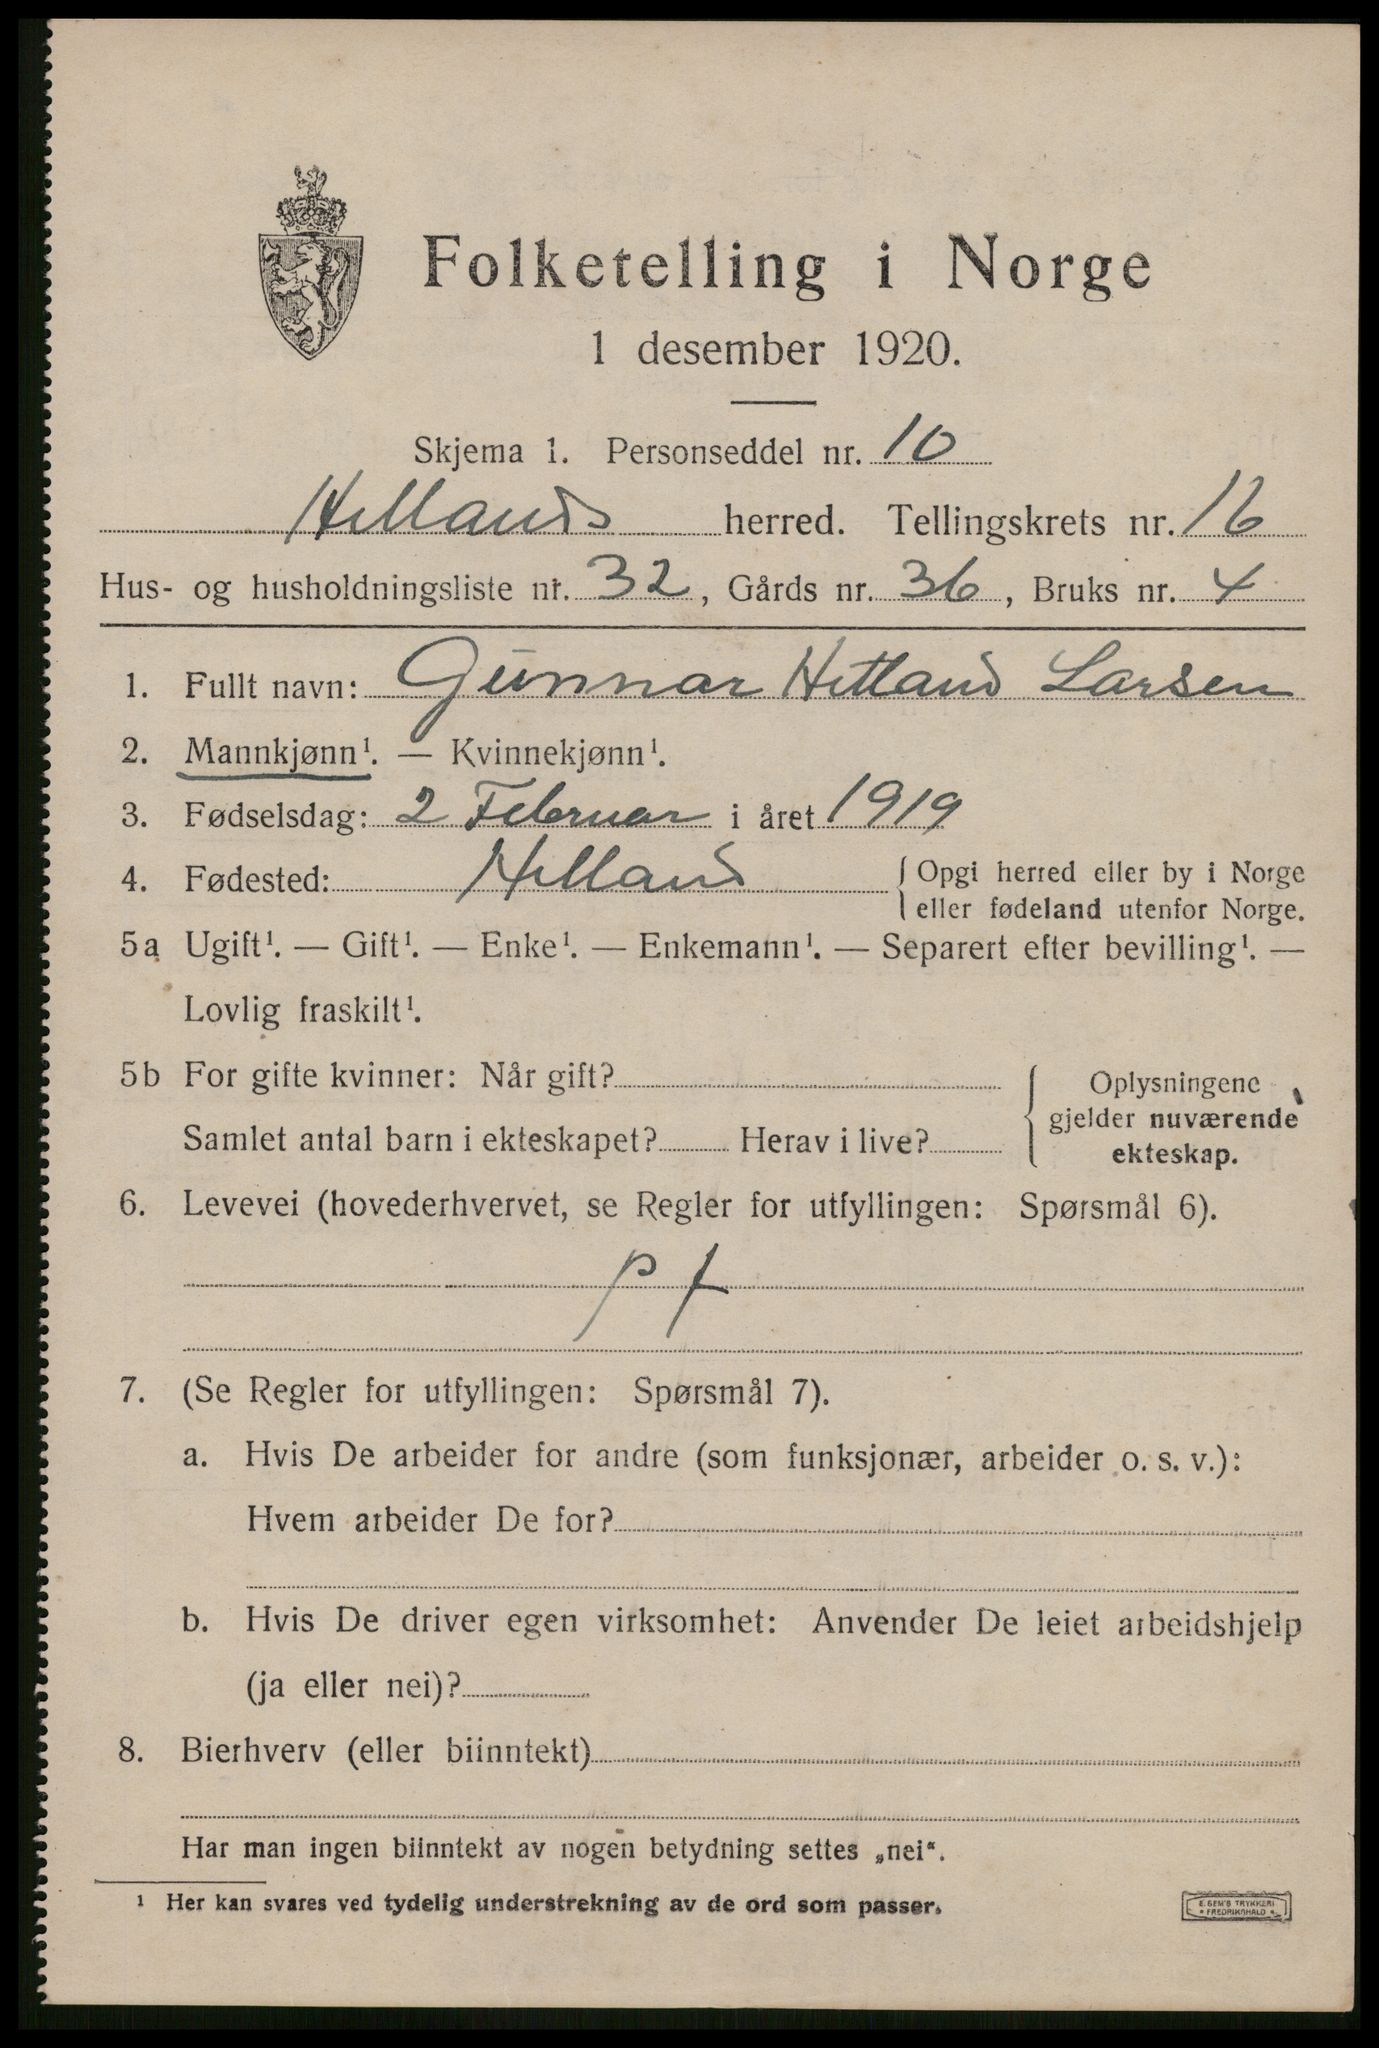 Folketelling i Norge
1 desember 1920.
Skjema 1. Personseddel nr. 10
Hetlands herred. Tellingskrets nr. 16
Hus- og husholdningsliste nr. 32, Gårds nr. 36, Bruks nr. 4
1. Fullt navn: Gunnar Hetland Larsen
2. Mannkjønn¹. — Kvinnekjønn¹.
3. Fødselsdag: 2 Februar i året 1919
4. Fødested: Hetland { Opgi herred eller by i Norge
eller fødeland utenfor Norge.
5a Ugift¹. — Gift¹. — Enke¹. — Enkemann¹. — Separert efter bevilling¹. —
Lovlig fraskilt¹.
5b For gifte kvinner: Når gift? { Oplysningene
Samlet antal barn i ekteskapet? Herav i live? gjelder nuværende
ekteskap.
6. Levevei (hovederhvervet, se Regler for utfyllingen: Spørsmål 6).
p f
7. (Se Regler for utfyllingen: Spørsmål 7).
a. Hvis De arbeider for andre (som funksjonær, arbeider o. s. v.):
Hvem arbeider De for?
b. Hvis De driver egen virksomhet: Anvender De leiet arbeidshjelp
(ja eller nei)?
8. Bierhverv (eller biinntekt)
Har man ingen biinntekt av nogen betydning settes „nei“.
¹ Her kan svares ved tydelig understrekning av de ord som passer.
E. SEM'S TRYKKERI
FREDRIKSHALD